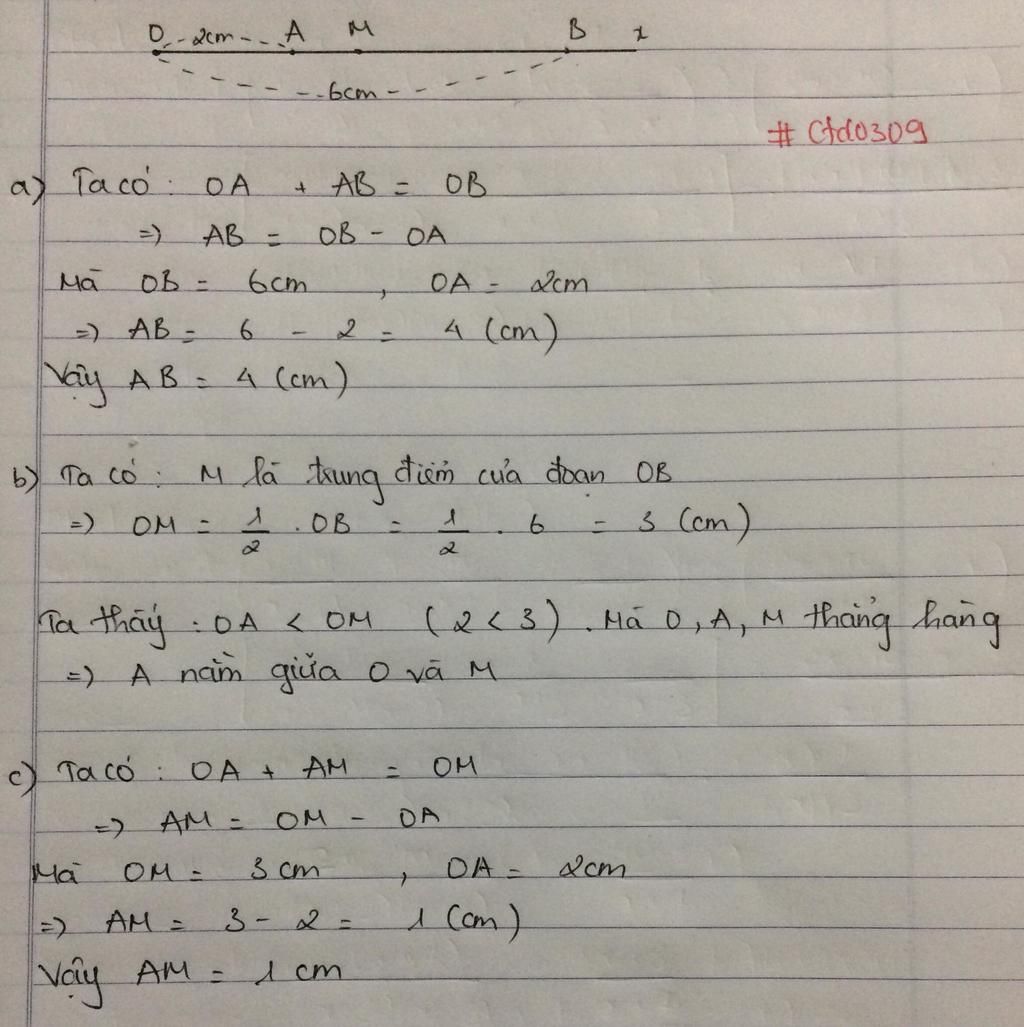 O 2cm A M B x
6cm
# Ctd0309
a) Ta có: OA + AB = OB
=> AB = OB - OA
Mà OB = 6cm , OA = 2cm
=> AB = 6 - 2 = 4 (cm)
Vậy AB = 4 (cm)
b) Ta có: M là trung điểm của đoạn OB
=> OM = 1/2 . OB = 1/2 . 6 = 3 (cm)
Ta thấy: OA < OM (2 < 3). Mà O, A, M thẳng hàng
=> A nằm giữa O và M
c) Ta có: OA + AM = OM
=> AM = OM - OA
Mà OM = 3 cm , OA = 2cm
=> AM = 3 - 2 = 1 (cm)
Vậy AM = 1 cm